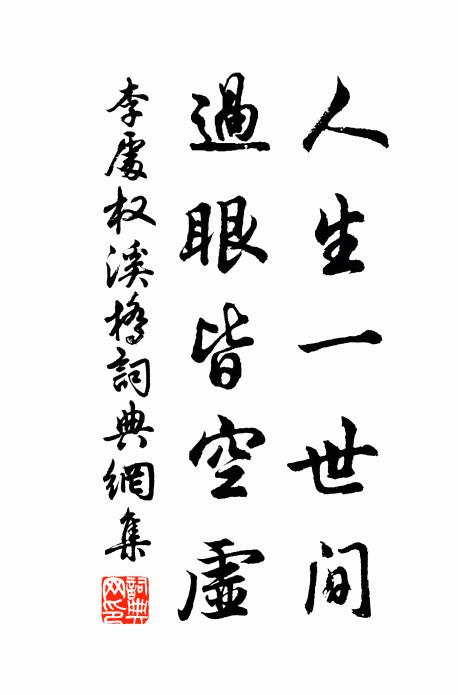 人生一世间
過眼皆空虚
李處权溪橋詞典網集
詞典网印